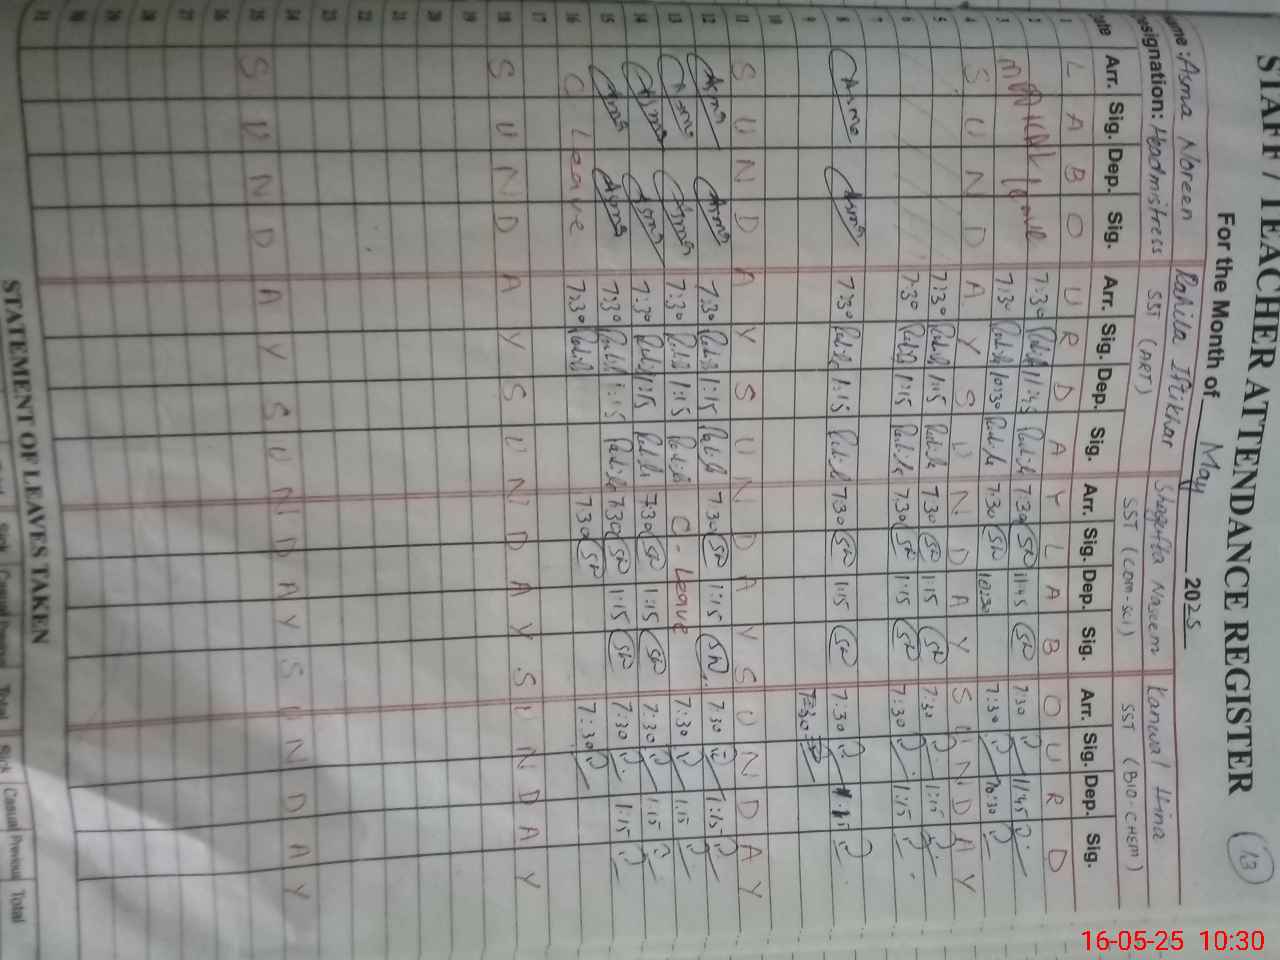 STAFF / TEACHER ATTENDANCE REGISTER
13
For the Month of May 2025
Name : Asma Noreen Rahila Iftikhar Shagufta Naseem Kanwal Hina
Designation: Headmistress SST (ART) SST (Com-sci) SST (BIO-CHEM)
Date Arr. Sig. Dep. Sig. Arr. Sig. Dep. Sig. Arr. Sig. Dep. Sig. Arr. Sig. Dep. Sig.
1 L A B O U R D A Y L A B O U R D
2 7:30 11:45 7:30 SN 11:45 SN 7:30 11:45
3 7:30 10:30 7:30 SN 10:30 7:30 10:30
4 S U N D A Y S U N D A Y S U N D A Y
5 7:30 1:15 7:30 SN 1:15 SN 7:30 1:15
6 7:30 1:15 7:30 SN 1:15 SN 7:30 1:15
7
8 Asma Asma 7:30 1:15 7:30 SN 1:15 SN 7:30 1:15
9 7:30
10
11 S U N D A Y S U N D A Y S U N D A Y
12 Asma Asma 7:30 1:15 7:30 SN 1:15 SN 7:30 1:15
13 Asma Asma 7:30 1:15 C - Leave 7:30 1:15
14 Asma Asma 7:30 1:15 7:30 SN 1:15 SN 7:30 1:15
15 Asma Asma 7:30 1:15 7:30 SN 1:15 SN 7:30 1:15
16 C Leave 7:30 7:30 SN 7:30
17
18 S U N D A Y S U N D A Y S U N D A Y
19
20
21
22
23
24
25 S U N D A Y S U N D A Y S U N D A Y
26
27
28
29
30
31
STATEMENT OF LEAVES TAKEN
Sick Casual Previous Total Sick Casual Previous Total
16-05-25 10:30